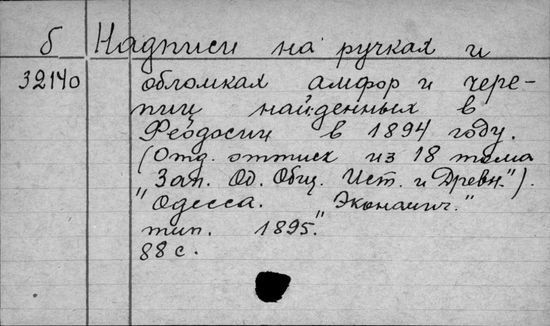 б Надписи на ручках и
32140 обломках амфор и чере-
пиц найденных в
Феодосии в 1894 году.
(Отд. оттиск из 18 тома
"Зап. Од. Общ. Ист. и Древн.").
Одесса. "Экономич."
тип. 1895.
88 с.